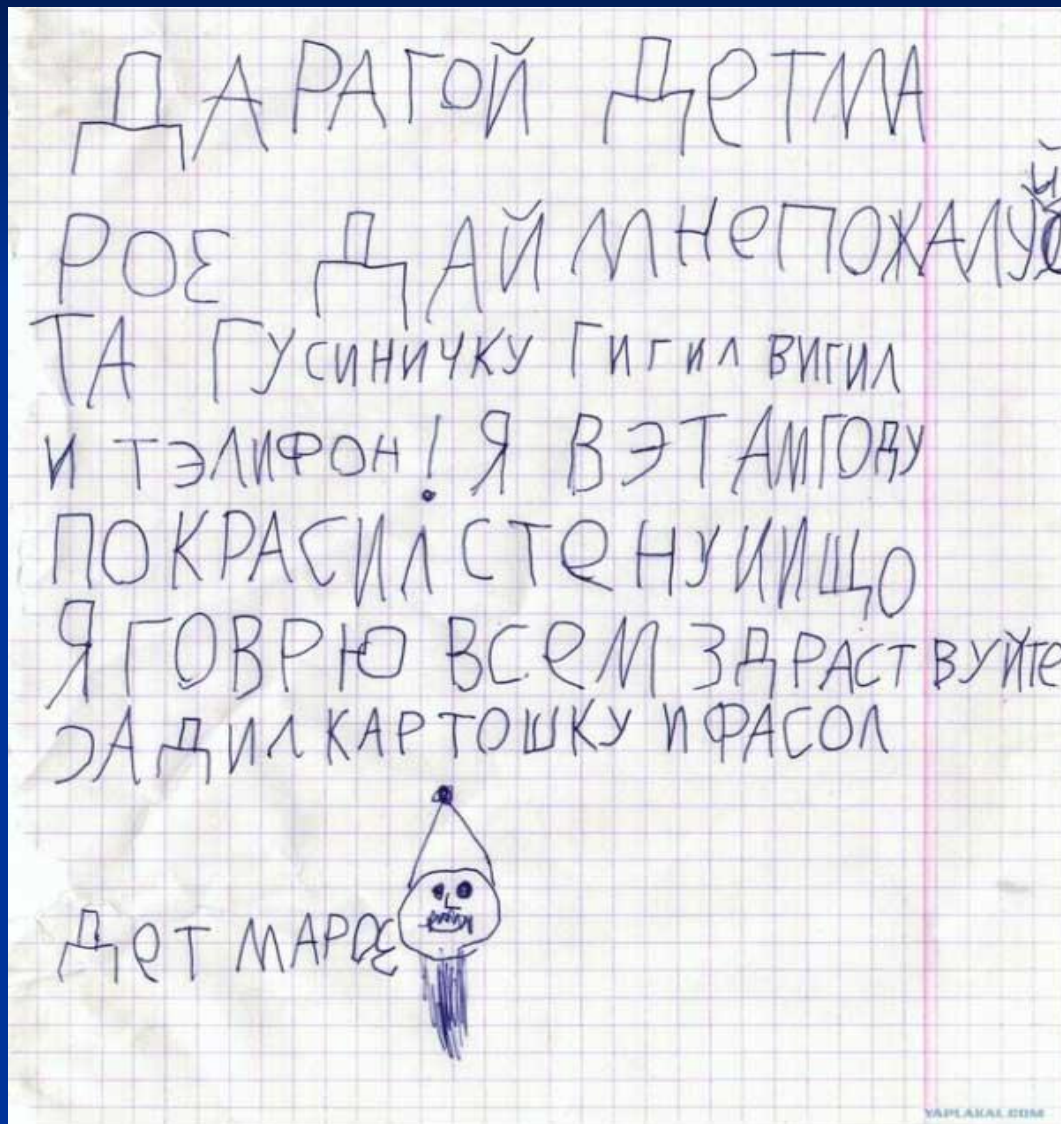 ДАРАГОЙ ДЕТМА
РОЗ ДАЙ МНЕПОЖАЛУЙС
ТА ГУСИНИЧКУ ГИГИЛ ВИГИЛ
И ТЭЛИФОН! Я В ЭТАМГОДУ
ПОКРАСИЛ СТЕНУИИЩО
Я ГОВРЮ ВСЕМ ЗДРАСТВУЙТЕ
ЗАДИЛ КАРТОШКУ И ФАСОЛ
ДЕТ МАРОЗ
YAPLAKAL.COM